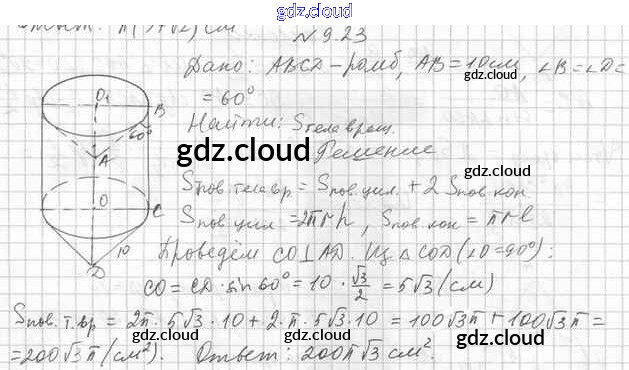 gdz.cloud
Ответ: π(9+√2) см
№9.23
Дано: ABCD – ромб, AB = 10см, ∠B=∠D=
gdz.cloud
= 60°
Найти: Sтела вращ.
gdz.cloud
Решение
Sпов.тела вр = Sпов.цил. + 2 Sпов.кон.
gdz.cloud
Sпов.цил = 2πrh, Sпов.кон = πrl
Проведём CO⊥AD. Из △COD (∠O=90°):
CO = CD · sin60° = 10 · √3/2 = 5√3 (см)
gdz.cloud
Sпов.т.вр = 2π · 5√3 · 10 + 2 · π · 5√3 · 10 = 100√3π + 100√3π =
= 200√3π (см²). Ответ: 200π√3 см².
gdz.cloud
gdz.cloud
O₁
B
60°
A
O
C
10
D